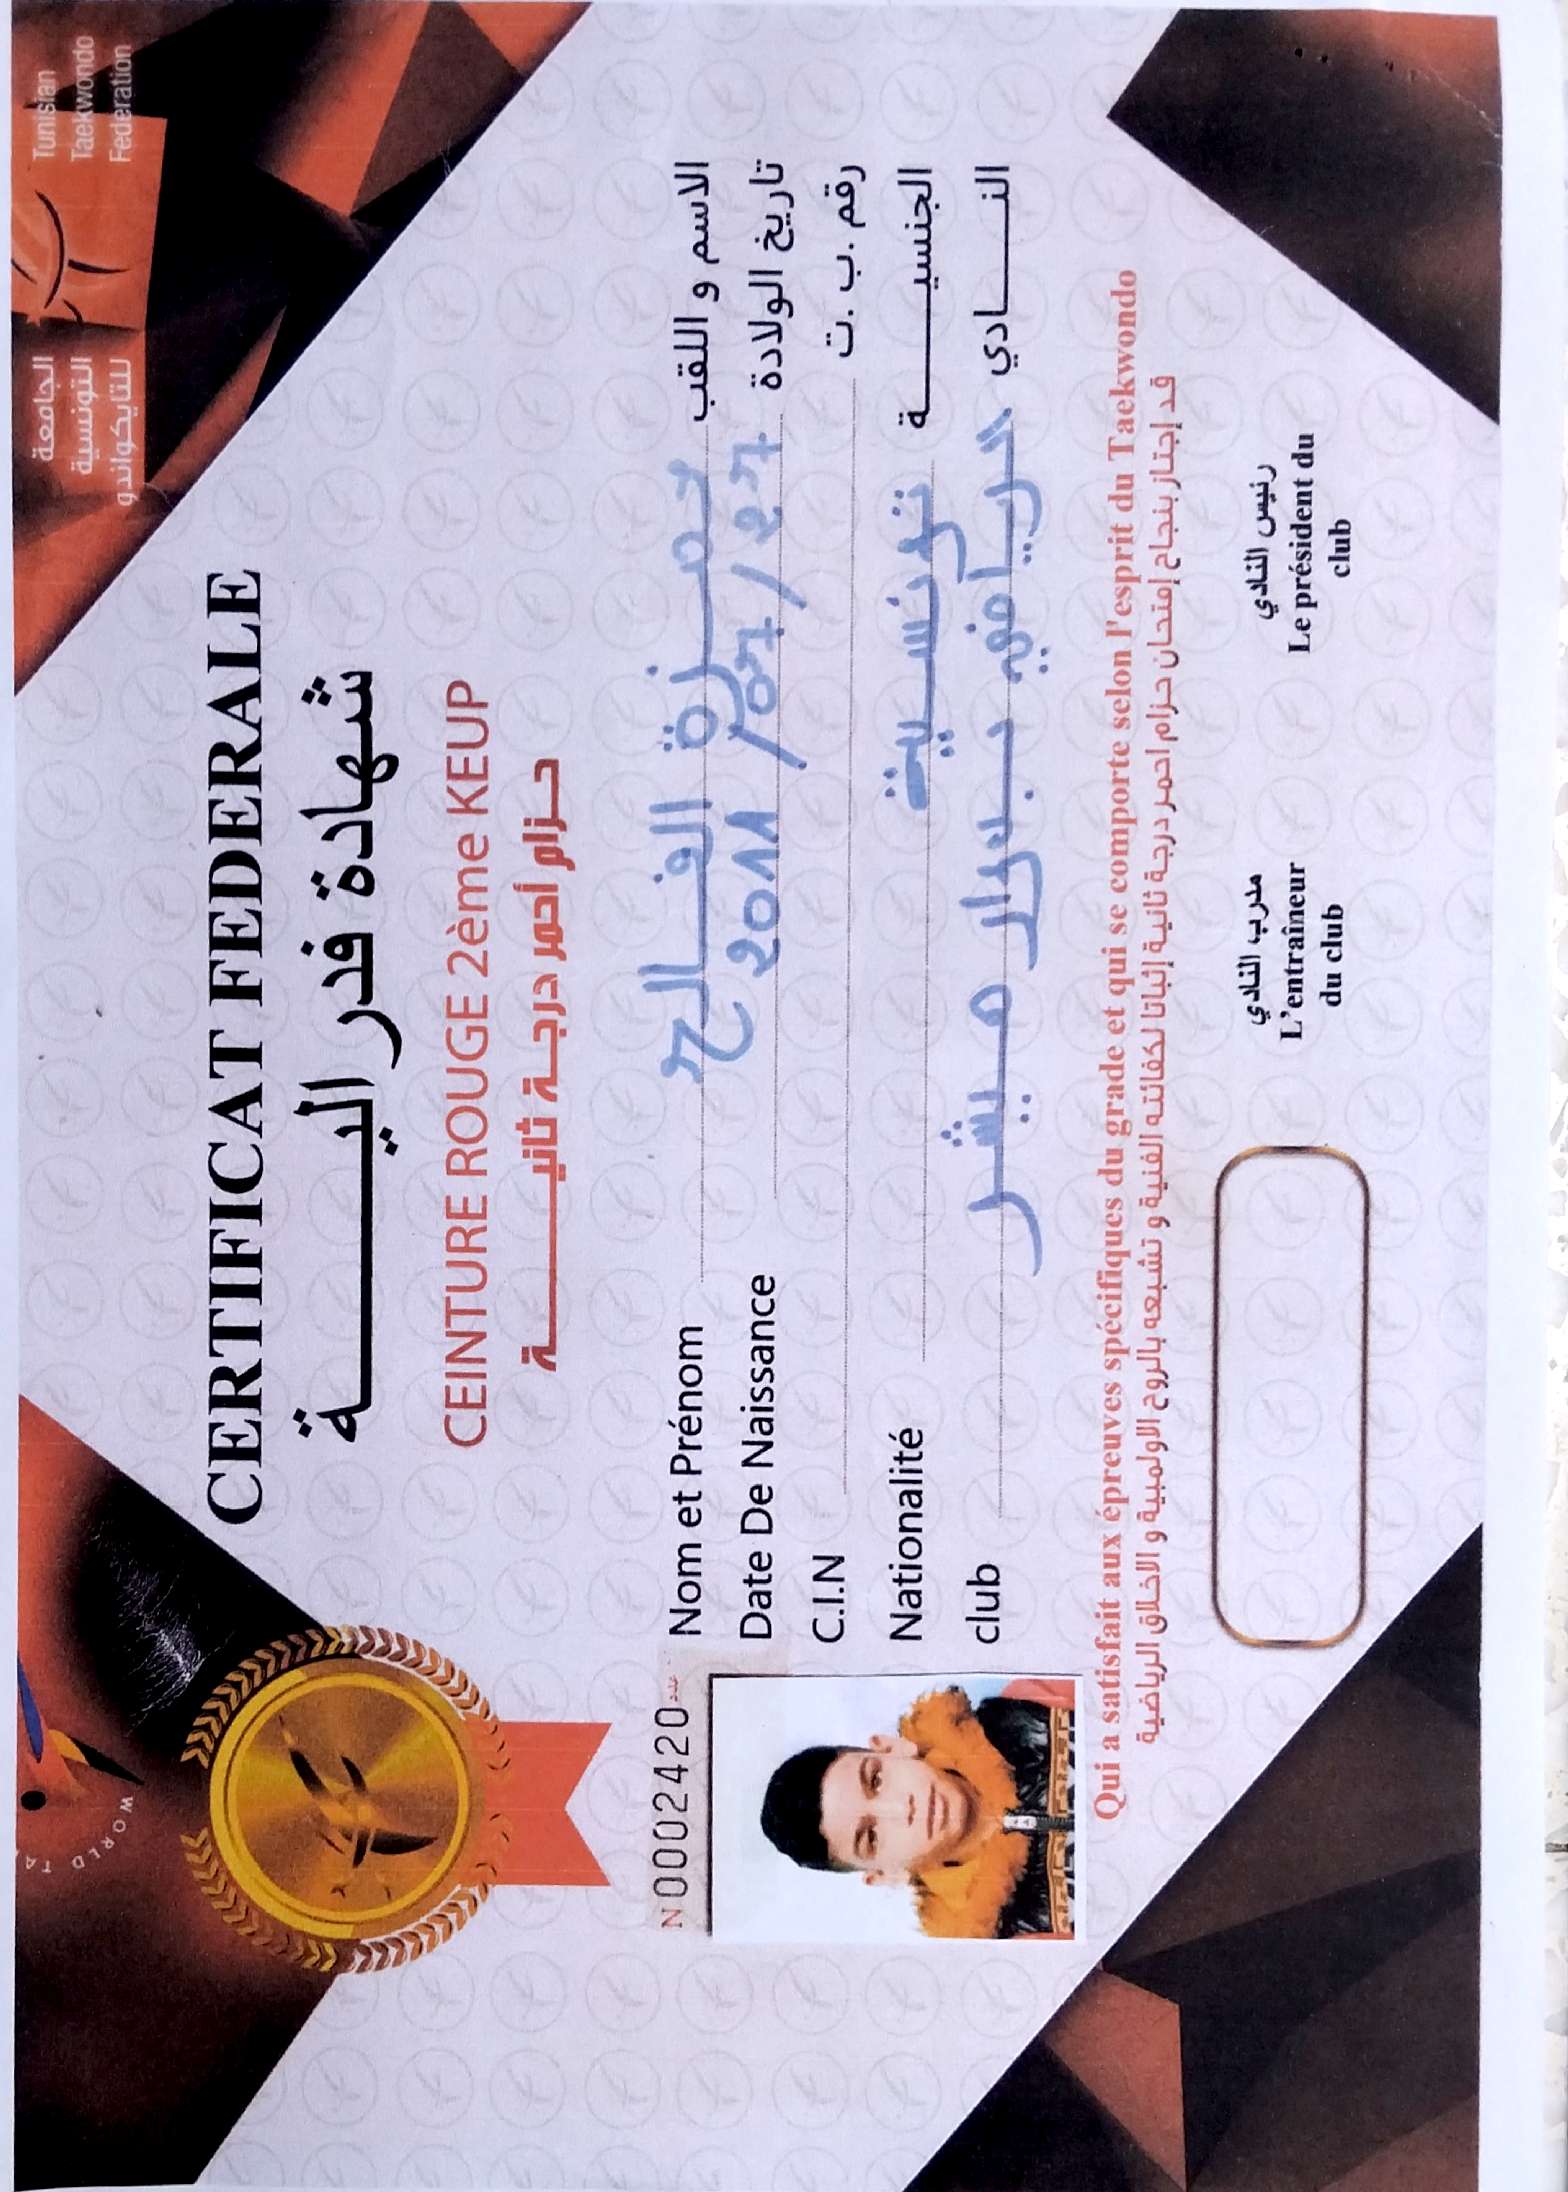 الجامعة
التونسية
للتايكواندو
Tunisian
Taekwondo
Federation
WORLD TA
CERTIFICAT FEDERALE
شهادة فدراليـــــــة
CEINTURE ROUGE 2ème KEUP
حـزام أحمر درجـة ثانيـــــــة
N 0002420 عدد
Nom et Prénom حمزة الفالح الاسم و اللقب
Date De Naissance 2011/07/27 تاريخ الولادة
C.I.N رقم .ب .ت
Nationalité تونسية الجنسيـــــة
club الرياضية النـــــادي
Qui a satisfait aux épreuves spécifiques du grade et qui se comporte selon l'esprit du Taekwondo
قد إجتاز بنجاح إمتحان حزام احمر درجة ثانية إثباتا لكفائته الفنية و تشبعه بالروح الاولمبية و الاخلاق الرياضية
مدرب النادي
L'entraîneur
du club
رئيس النادي
Le président du
club